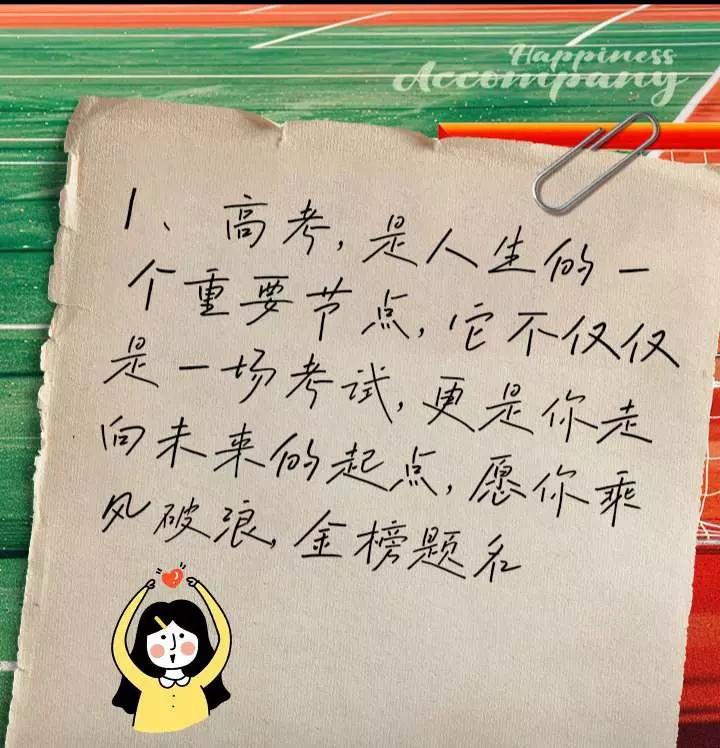 Happiness
Accompany
1、高考,是人生的一
个重要节点,它不仅仅
是一场考试,更是你走
向未来的起点,愿你乘
风破浪,金榜题名